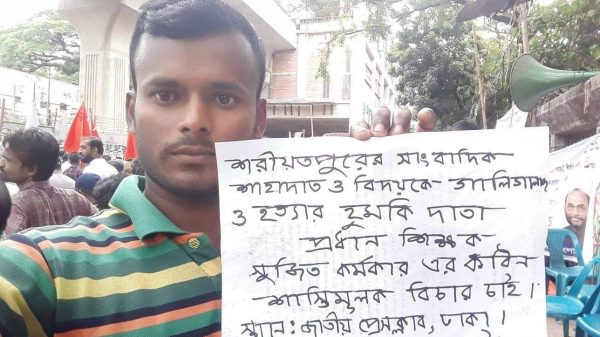 শরীয়তপুরের সাংবাদিক
শাহাদাত ও বিদয়কে গালিগালাজ
ও হত্যার হুমকি দাতা
প্রধান শিক্ষক
সুজিত কর্মকার এর কঠিন
শাস্তিমূলক বিচার চাই।
স্থান: জাতীয় প্রেসক্লাব, ঢাকা।